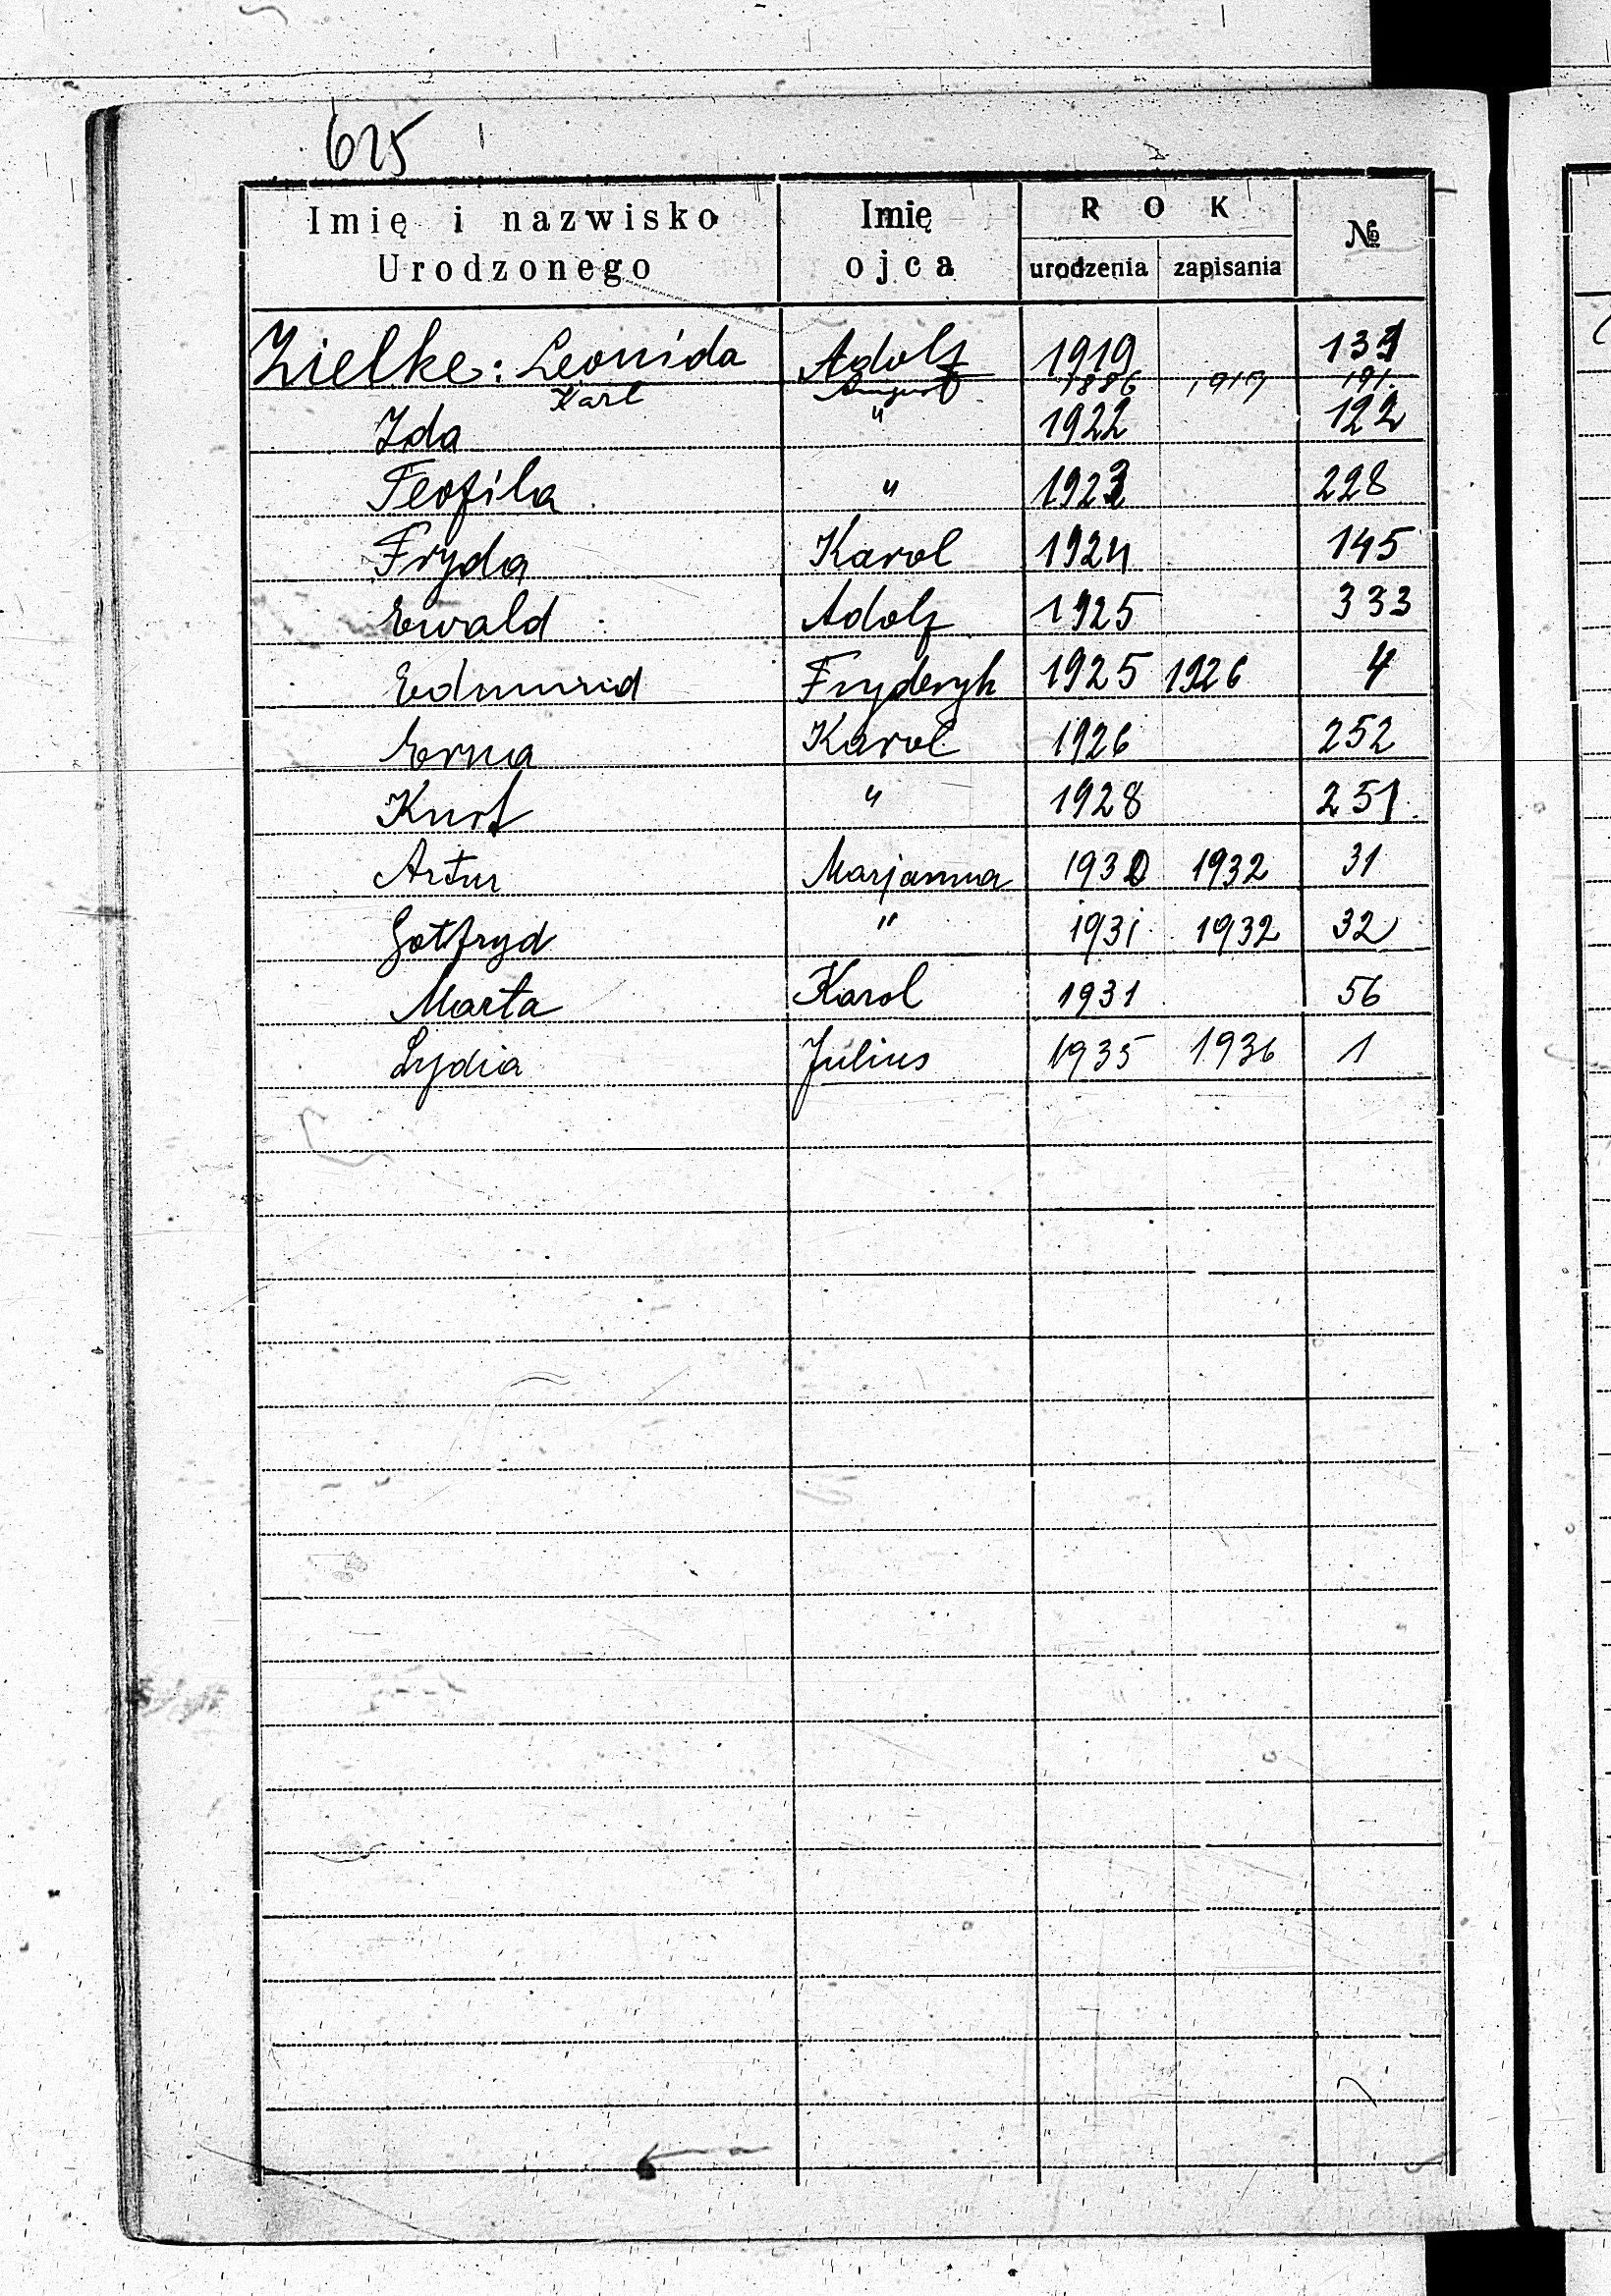 625
Imię i nazwisko Urodzonego Imię ojca ROK urodzenia zapisania №
Zielke: Leonida Adolf 1919 133
Karl August 1886 1919 191.
Ida " 1922 122
Teofila " 1923 228
Fryda Karol 1924 145
Ewald Adolf 1925 333
Edmund Fryderyk 1925 1926 4
Erna Karol 1926 252
Kurt " 1928 251
Artur Marjanna 1930 1932 31
Gotfryd " 1931 1932 32
Marta Karol 1931 56
Lydia Julius 1935 1936 1